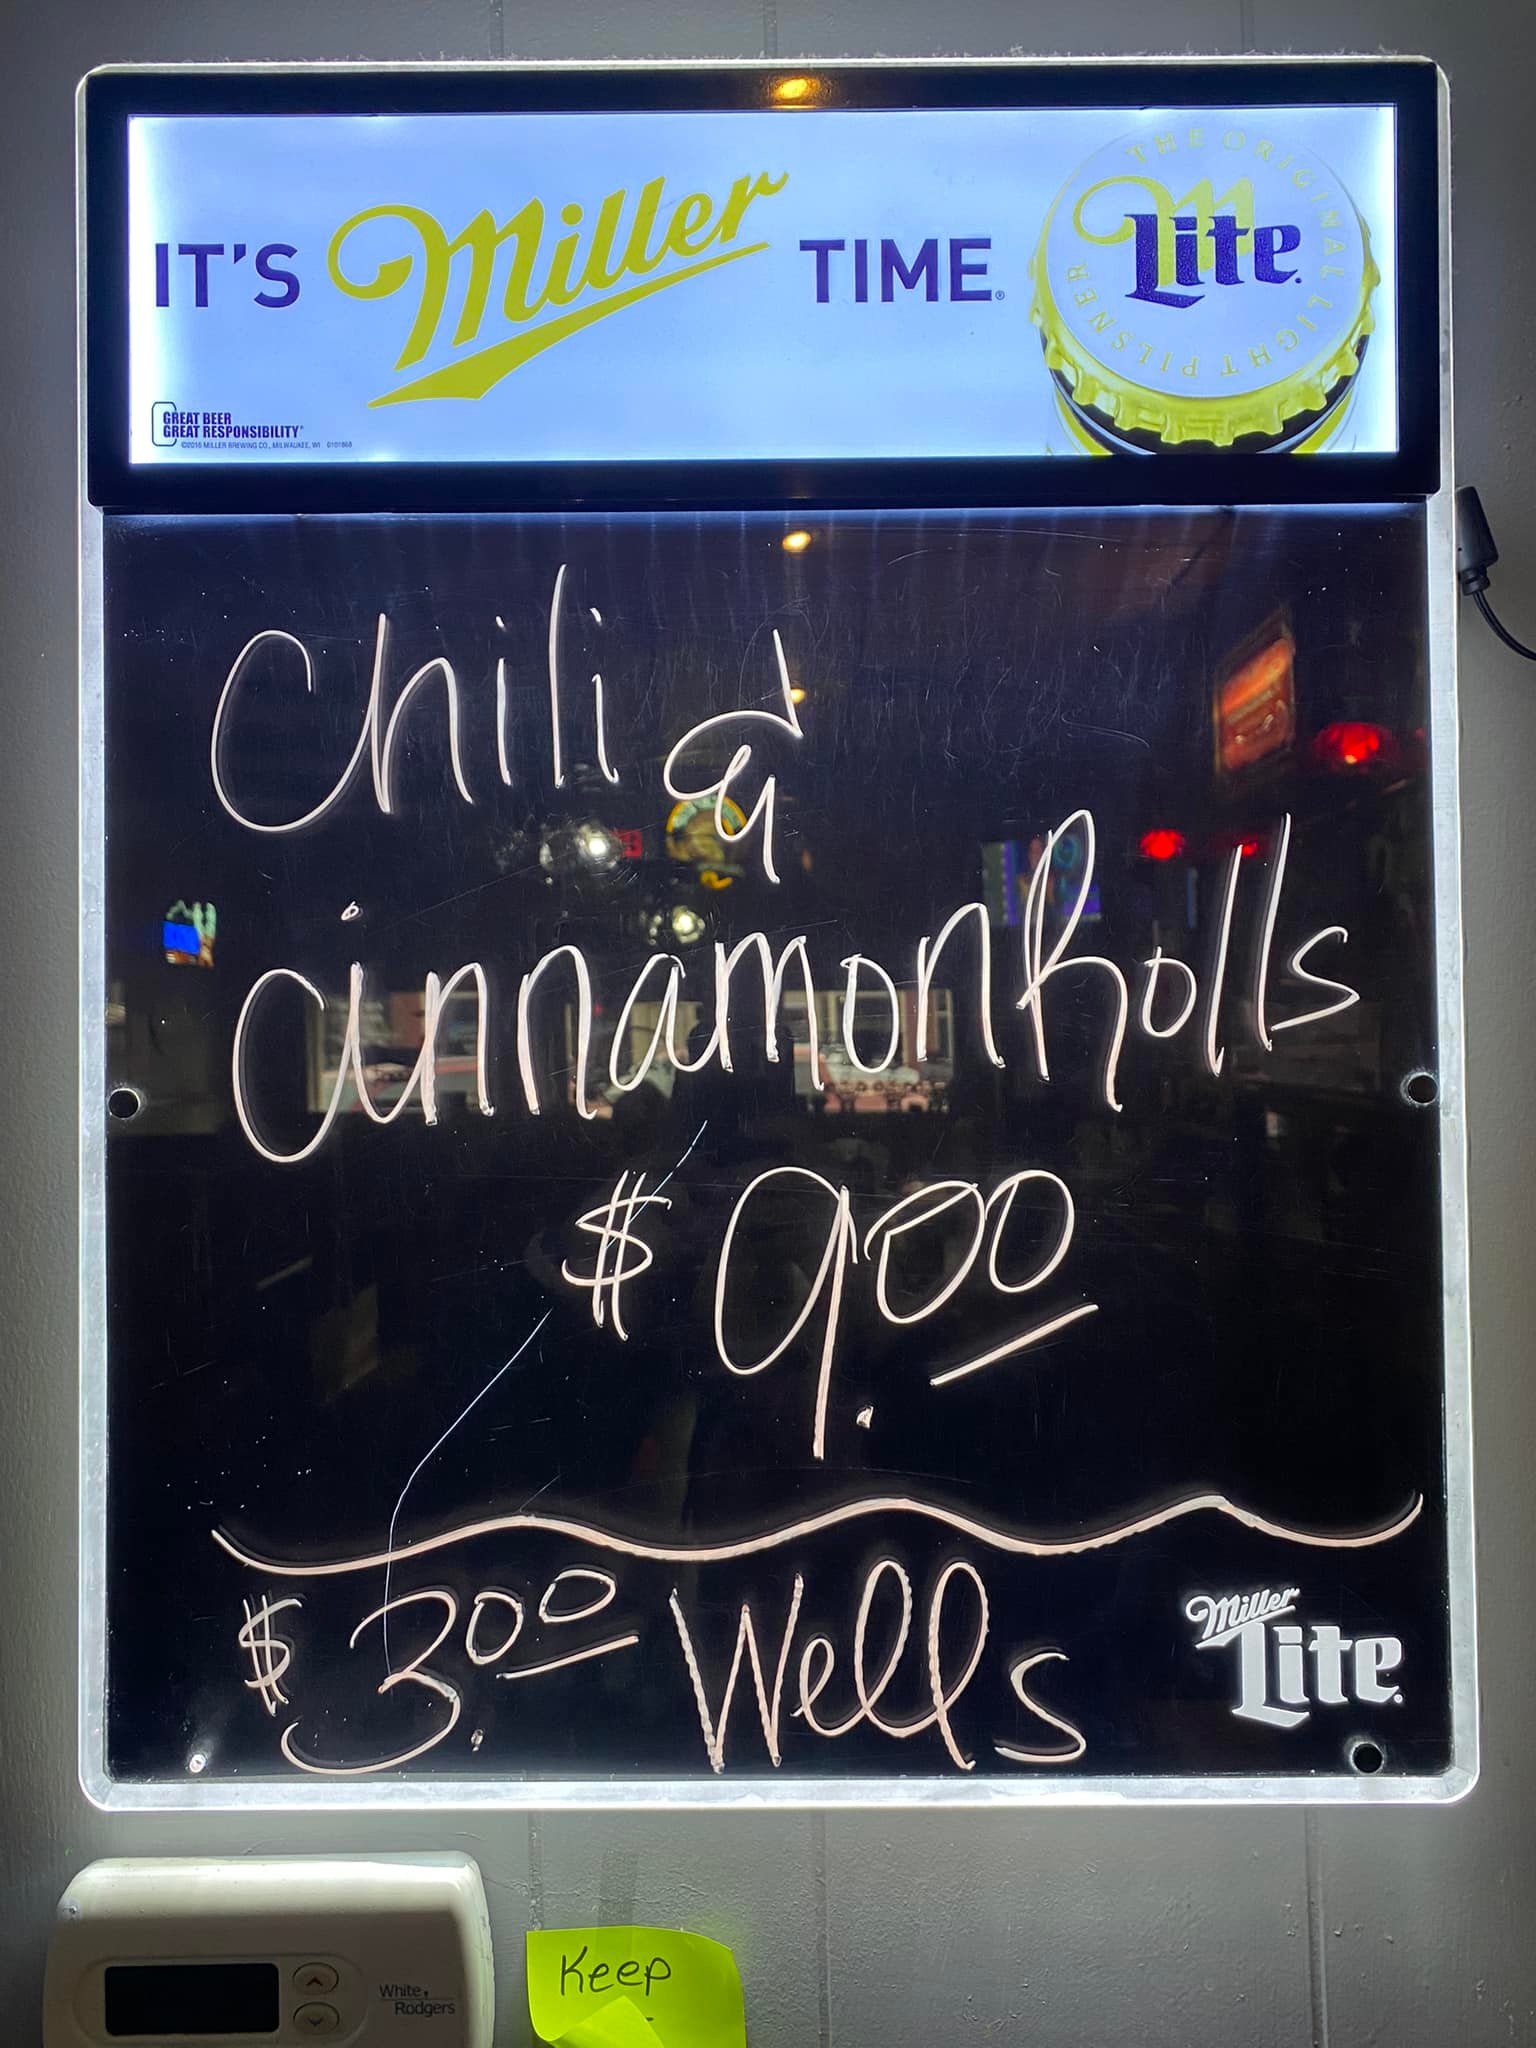 IT'S Miller TIME.®
THE ORIGINAL LIGHT PILSNER
Lite
GREAT BEER
GREAT RESPONSIBILITY®
©2016 MILLER BREWING CO., MILWAUKEE, WI 0101868
Chili &
cinnamon Rolls
$9.00
$3.00 Wells
Miller
Lite
White
Rodgers
Keep